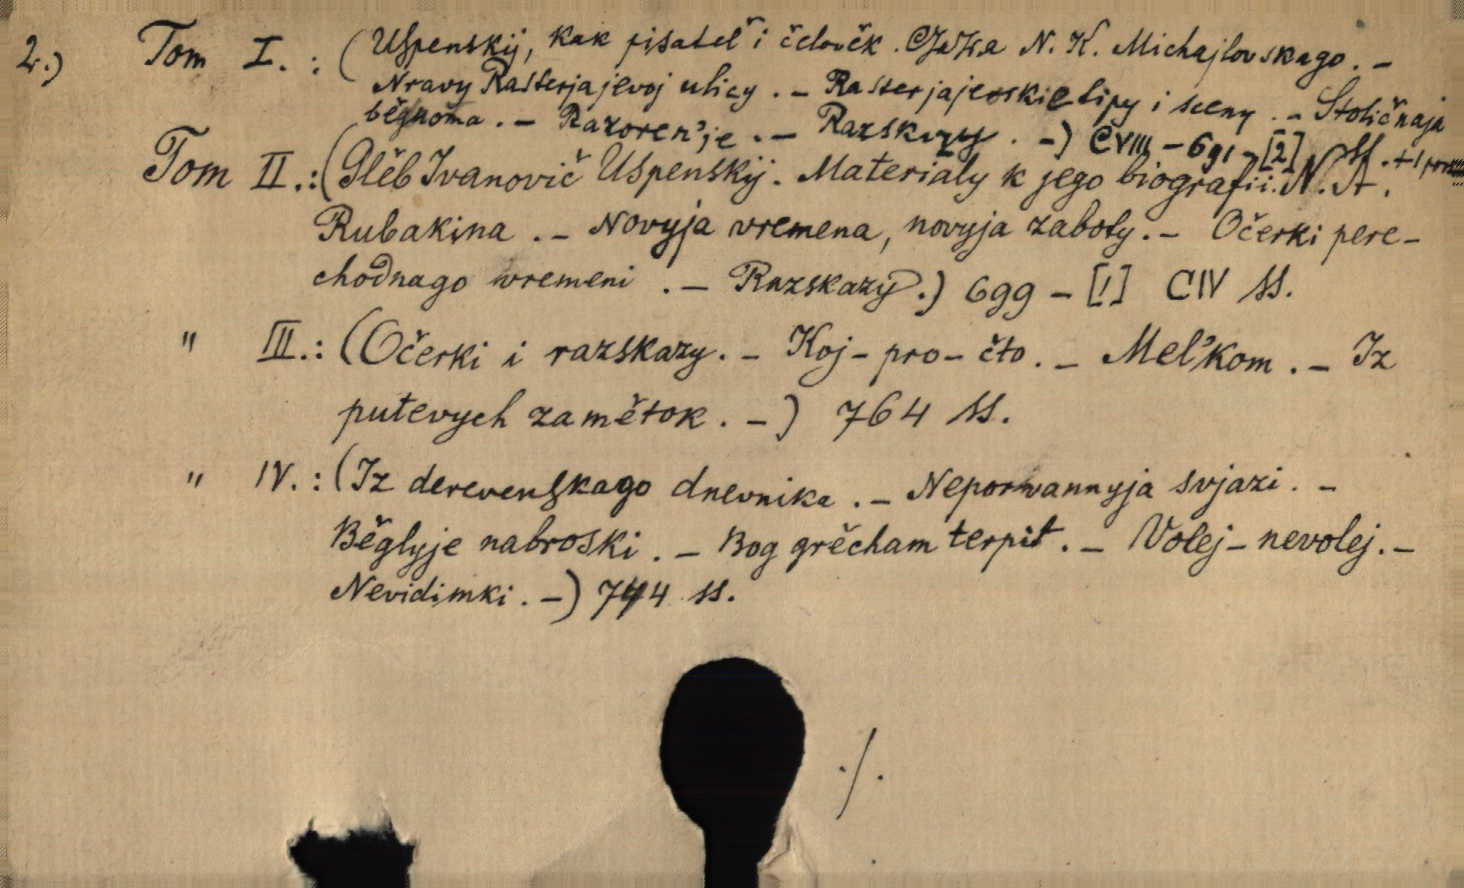 2.) Tom I. : (Uspenskij, kak pisatel' i čelověk. Statja N. K. Michajlovskago. –
Nravy Rasterjajevoj ulicy. – Rasterjajevskie tipy i sceny. – Stoličnaja
běgnoma. – Razoren'je. – Razskazy. –) CVIII – 691 – [2] SS. + 1 portr.
Tom II.: (Glěb Ivanovič Uspenskij. Materialy k jego biografii. N. A.
Rubakina. – Novyja vremena, novyja zaboty. – Očerki pere-
chodnago vremeni. – Razskazy.) 699 – [1] CIV SS.
" III.: (Očerki i razskazy. – Koj-pro-čto. – Mel'kom. – Iz
putevych zamětok. –) 764 SS.
" IV. : (Iz derevenskago dnevnika. – Neporvannyja svjazi. –
Běglyje nabroski. – Bog grěcham terpit. – Volej-nevolej. –
Nevidimki. –) 744 SS.
./.